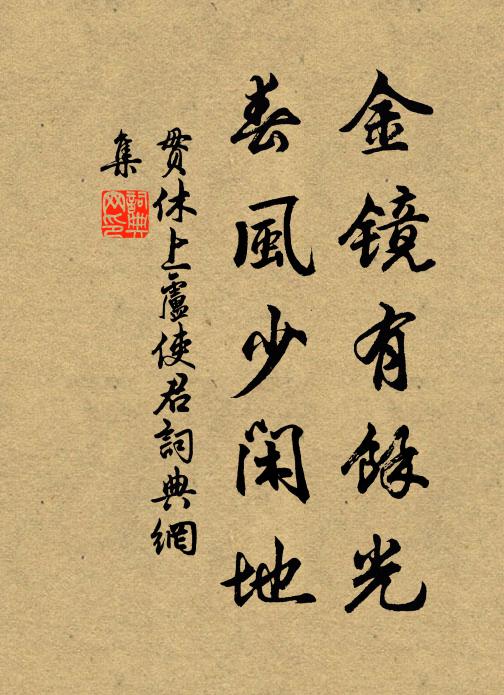 金镜有餘光
春風少閑地
貫休上盧使君詞典網
集
詞典
网印